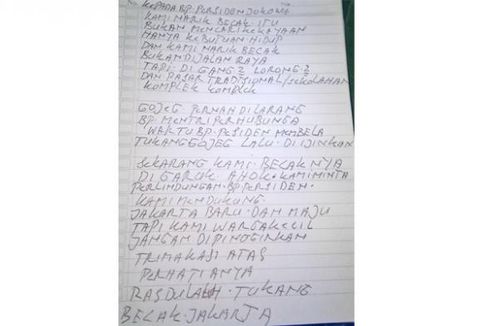 KEPADA BP. PERSIDEN JOKOWI
KAMI NARIK BECAK ITU
BUKAN MENCARI KEKAYAAN
HANYA KEBUTUAN HIDUP
DAN KAMI NARIK BECAK
BUKAN DIJALAN RAYA
TAPI DI GANG2 LORONG2
DAN PASAR TRADISIONAL/SEKOLAHAN
KOMPLEK KOMPLEK
GOJEG PERNAH DILARANG
BP. MENTRI PERHUBUNGA
WAKTU BP. PESIDEN MEMBELA
TUKANG GOJEK LALU DIIJINKAN
SEKARANG KAMI BECAKNYA
DI GARUK AHOK. KAMI MINTA
PERLINDUNGAN. BP PERSIDEN.
KAMI MENDUKUNG.
JAKARTA BARU DAN MAJU
TAPI KAMI WARGA KECIL
JANGAN DIPINGGINKAN
TRIMAKASI ATAS
PERHATIANYA
RASDULAH. TUKANG
BECAK. JAKARTA